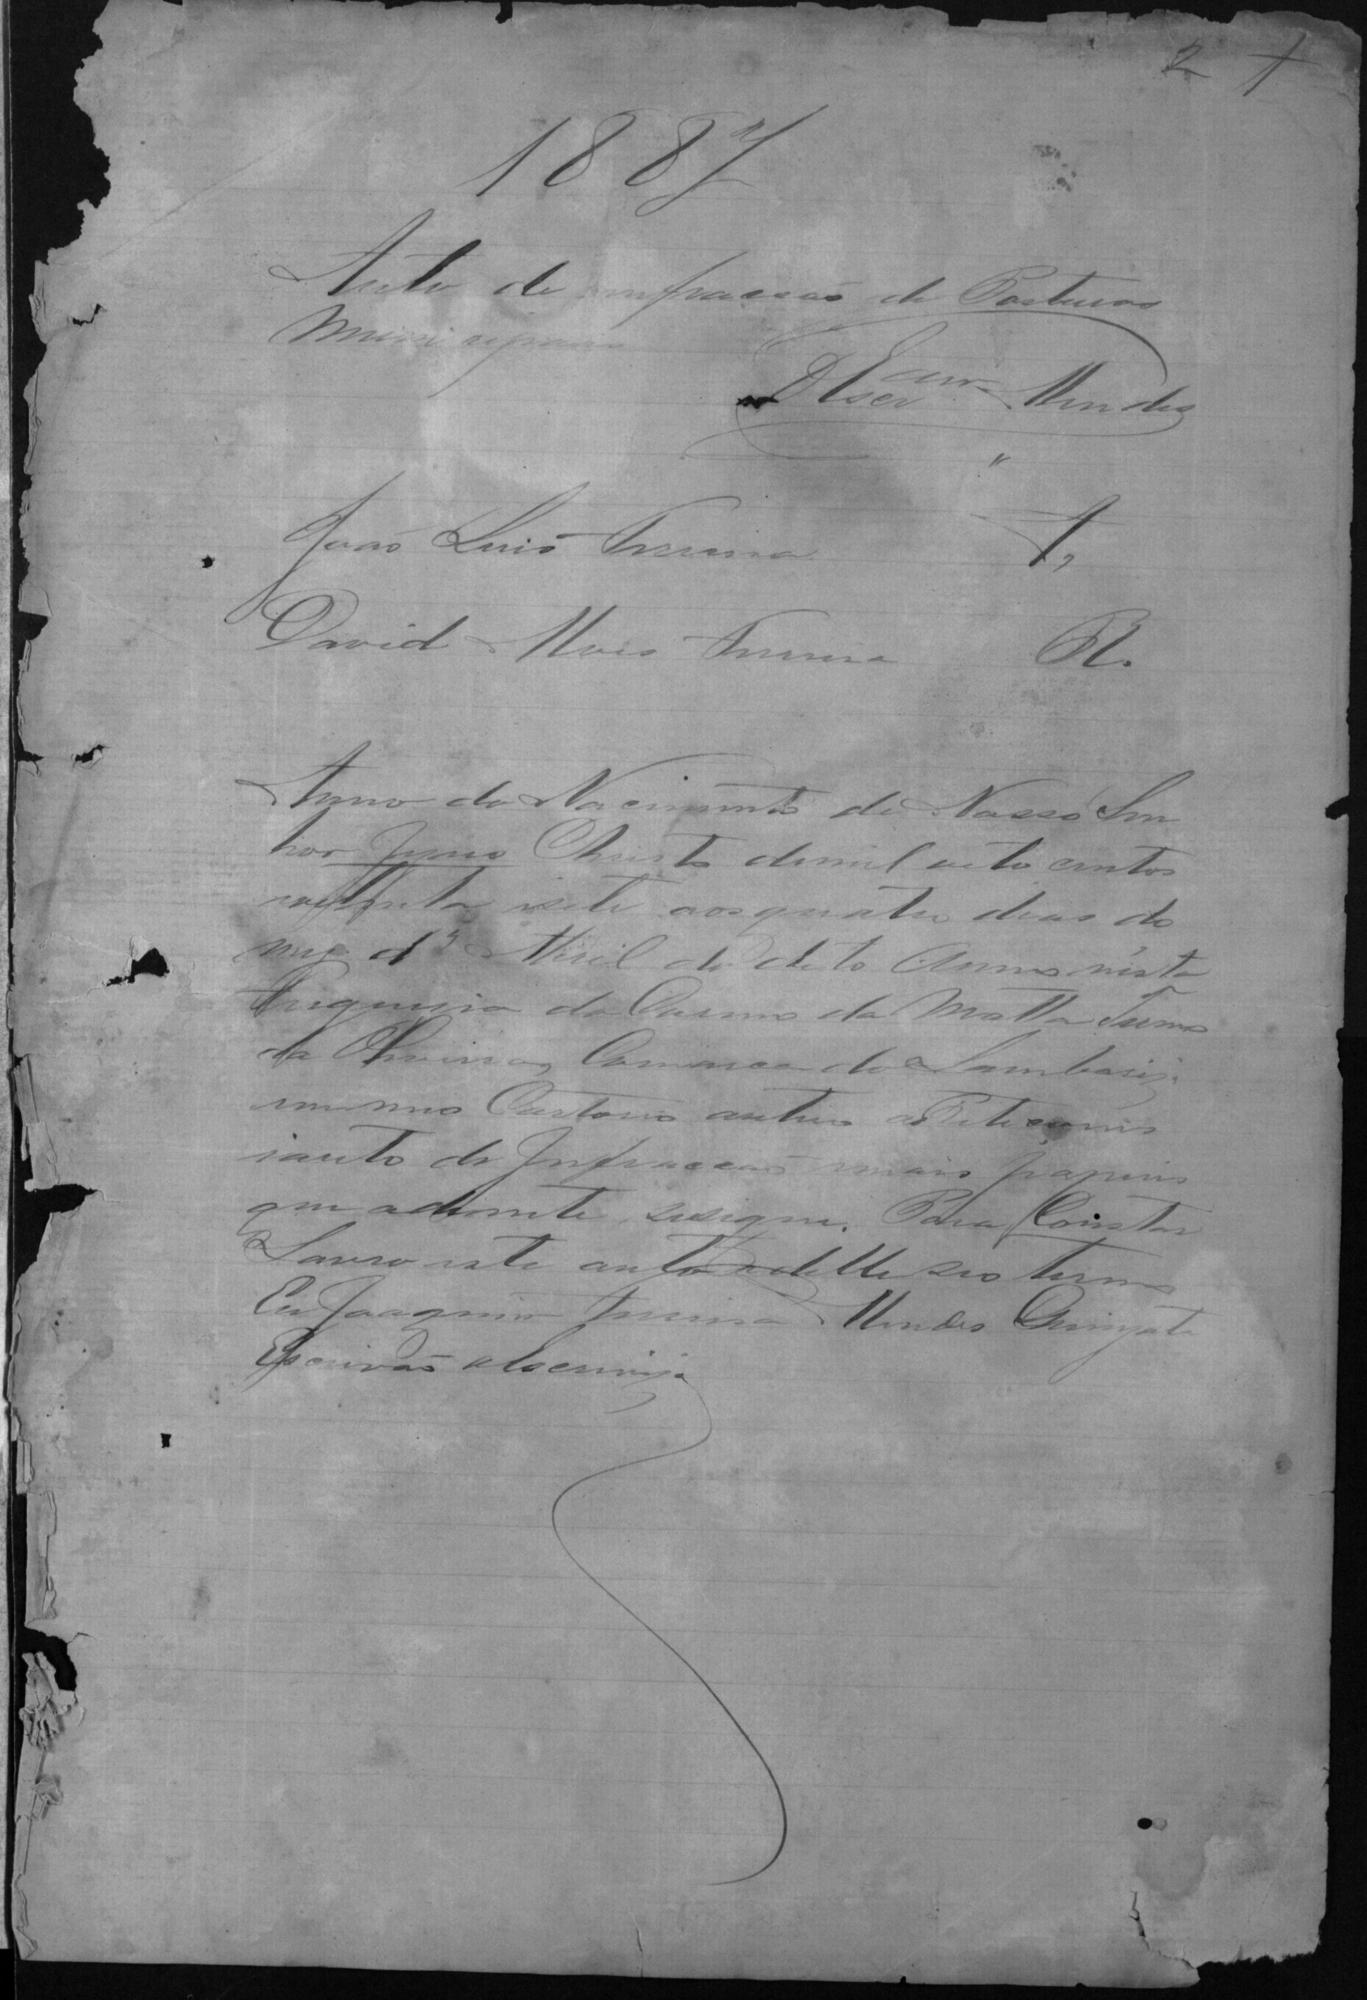 2 1
1887
Auto de infracção de Posturas
Municipaes
O Escr.am Mendes
João Luis Ferreira A,
David Alves Ferreira R.
Anno do Nacimento de Nosso Sen
hor Jesus Christo de mil oito centos
oitenta isete aos quatro dias do
mez d' Abril do dito Anno nésta
Freguezia do Carmo da Matta Termo
da Oliveira, Comarca do
em meo Cartorio autuo a Petição
iauto de Infracção imais papeis
que adiante sesegue. Para Constar
Lavro este auto
Eu Joaquim Ferreira Mendes
Escrivão o Escrivi